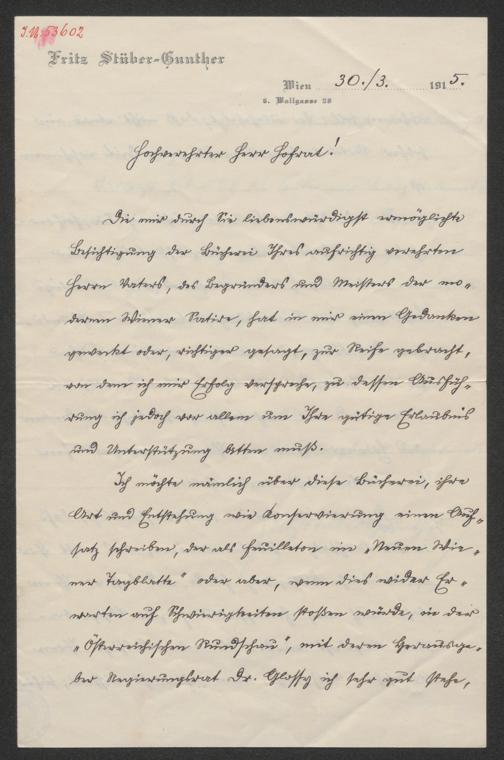 J.N. 53602
Fritz Stüber-Gunther
Wien 30./3. 1915.
6. Wallgasse 28
Hochverehrter Herr Hofrat!
Die mir durch Sie liebenswürdigst ermöglichte
Besichtigung der Bücherei Ihres aufrichtig verehrten
Herrn Vaters, des Begründers und Meisters der mo-
dernen Wiener Satire, hat in mir einen Gedanken
geweckt oder, richtiger gesagt, zur Reife gebracht,
von dem ich mir Erfolg verspreche, zu dessen Ausfüh-
rung ich jedoch vor allem um Ihre gütige Erlaubnis
und Unterstützung bitten muß.
Ich möchte nämlich über diese Bücherei, ihre
Art und Entstehung wie Konservierung einen Auf-
satz schreiben, der als Feuilleton im „Neuen Wie-
ner Tagblatte" oder aber, wenn dies wider Er-
warten auf Schwierigkeiten stoßen würde, in der
„Österreichischen Rundschau", mit deren Herausge-
ber Regierungsrat Dr. Glossy ich sehr gut stehe,